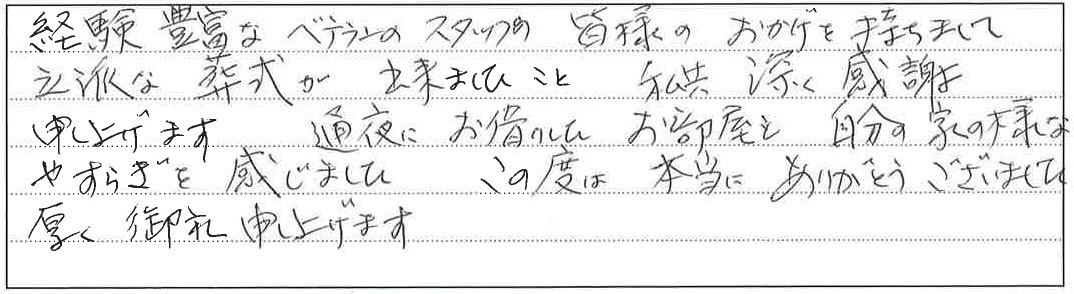 経験豊富な ベテランの スタッフの 皆様の おかげを持ちまして
立派な 葬式が 出来ました こと 私共 深く 感謝
申し上げます 通夜に お借りした お部屋も 自分の家の様な
やすらぎを 感じました この度は 本当に ありがとうございました
厚く 御礼 申し上げます